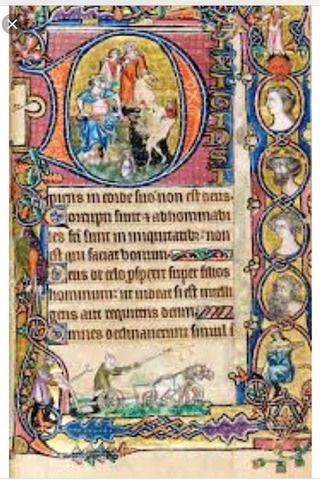 D
piens in corde suo non est deus·
Corrupti sunt ⁊ abhominabi
les fc̄i sunt in iniquitatibꝫ: non
est qui faciat bonum·
Deus de celo ꝓspexit super filios
hominum: ut uideat si est intelli
gens aut requirens deum·
Omnes declinauerunt simul i